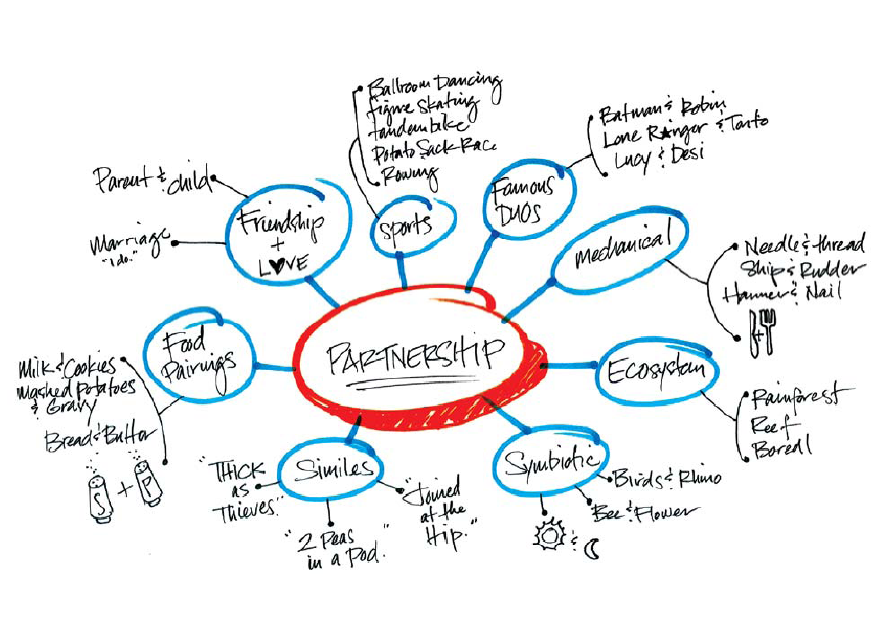 PARTNERSHIP
Friendship
+
L♥VE
Parent & child
Marriage
"I do."
Sports
Ballroom Dancing
Figure Skating
tandem bike
Potato Sack Race
Rowing
Famous
DUOS
Batman & Robin
Lone Ranger & Tonto
Lucy & Desi
Mechanical
Needle & thread
Ship & Rudder
Hammer & Nail
+
Ecosystem
Rainforest
Reef
Boreal
Symbiotic
Birds & Rhino
Bee & Flower
&
Similes
"THICK
as
Thieves."
"2 Peas
in a Pod."
"Joined
at the
Hip."
Food
Pairings
Milk & Cookies
Mashed Potatoes
& Gravy
Bread & Butter
S + P